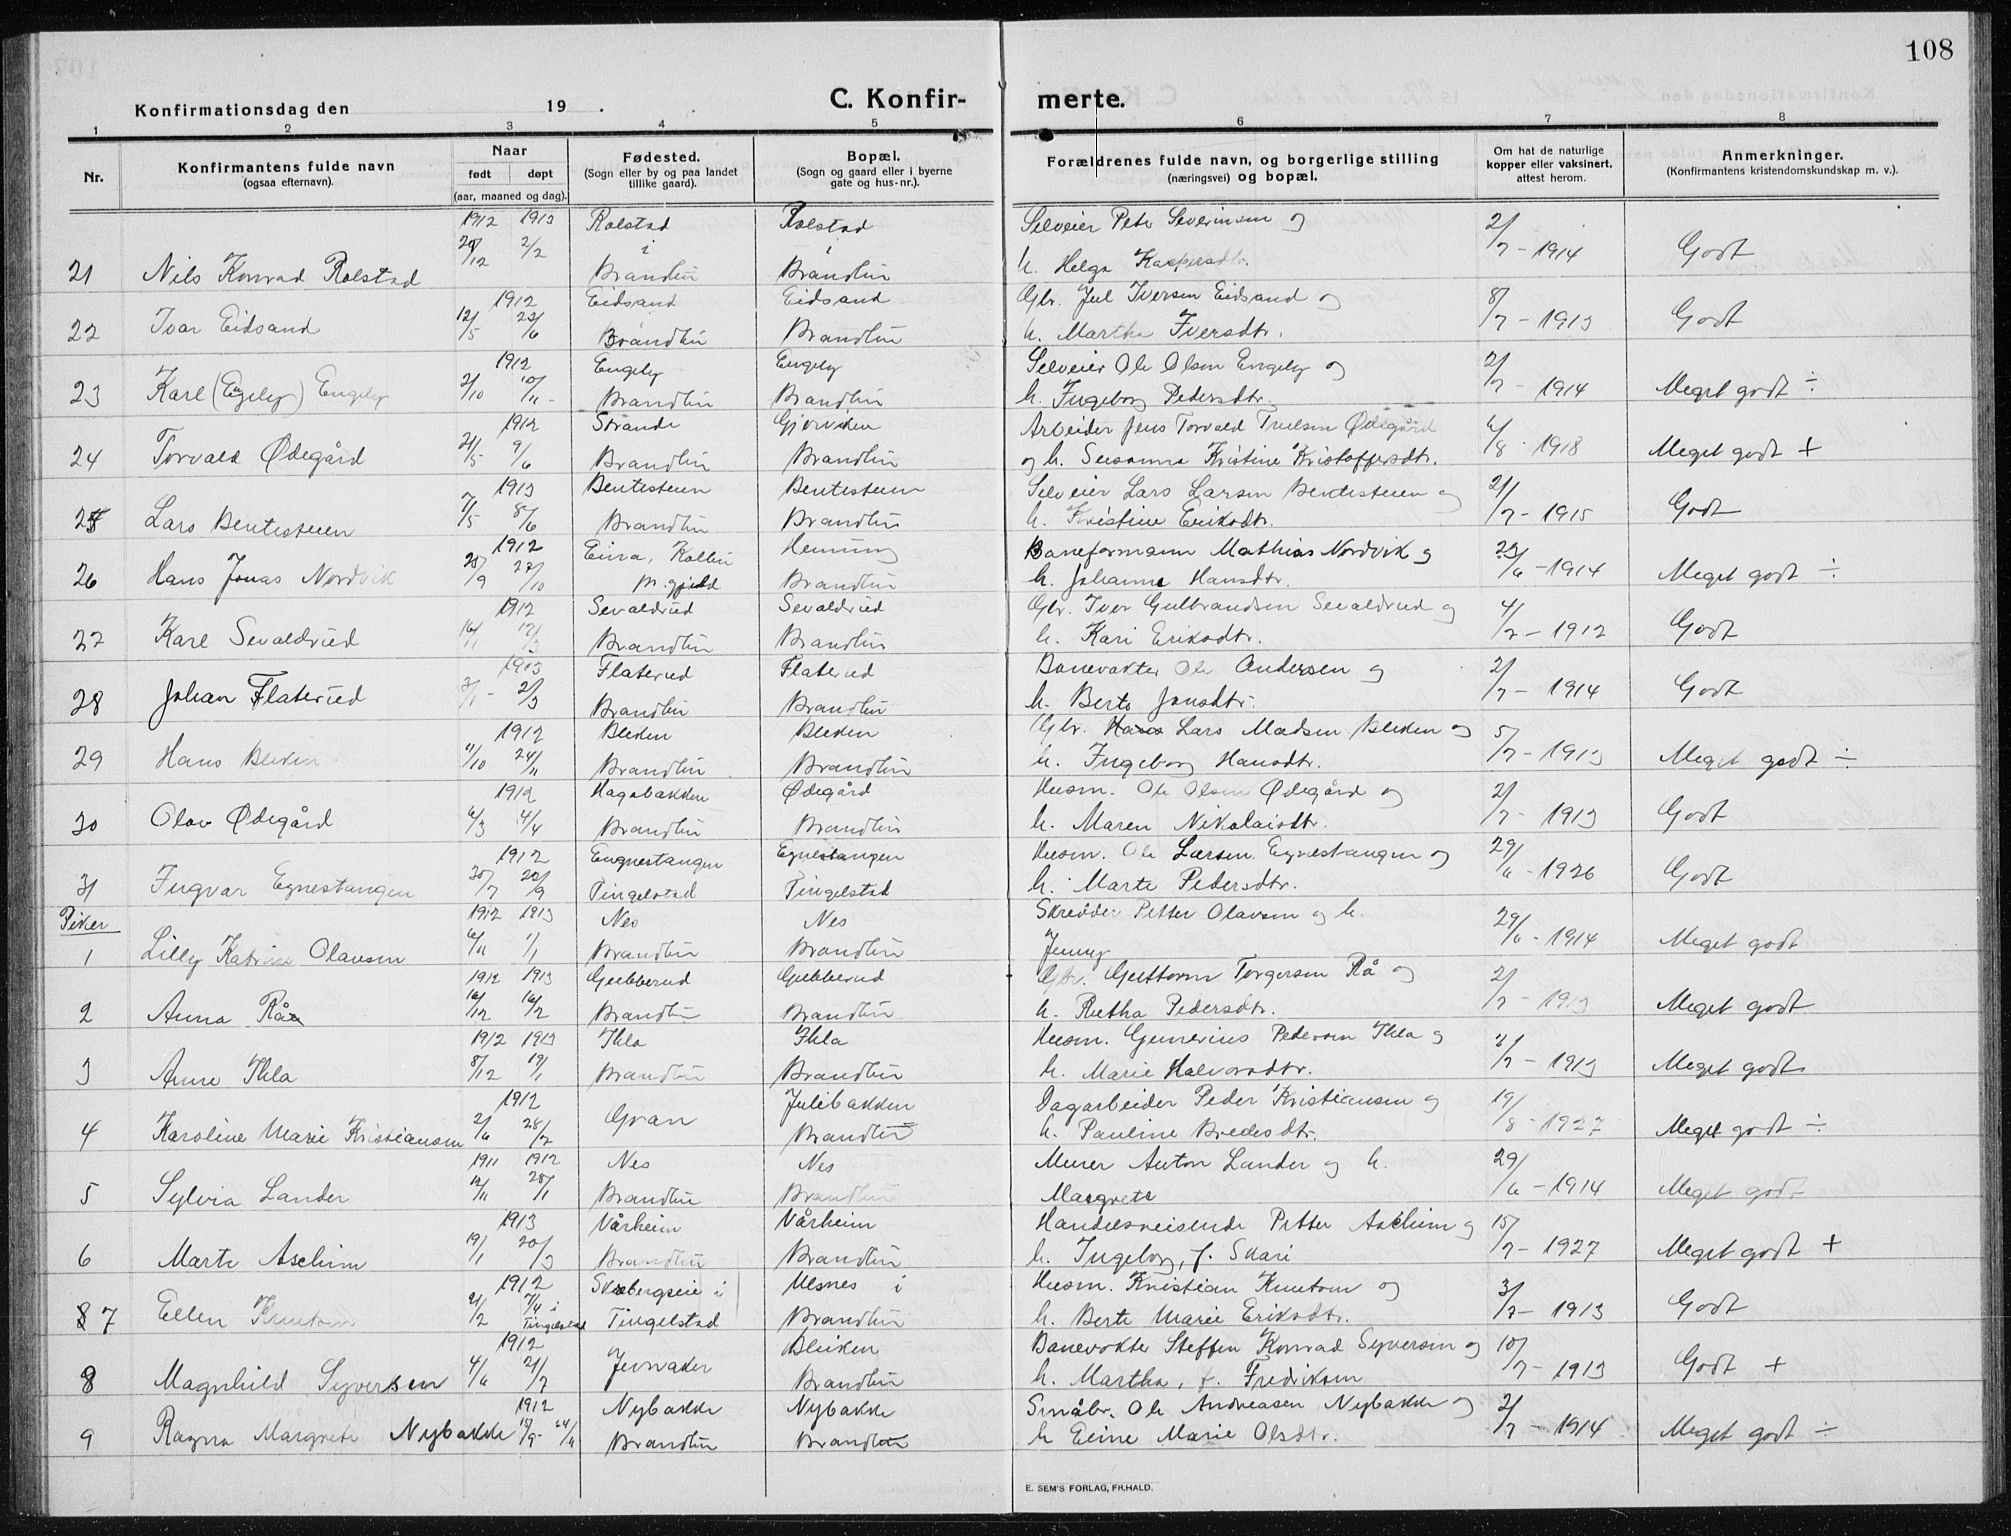 108
Konfirmationsdag den 19 .
C. Konfir- merte.
1 2 3 4 5 6 7 8
Nr.
Konfirmantens fulde navn
(ogsaa efternavn).
Naar
født døpt
(aar, maaned og dag).
Fødested.
(Sogn eller by og paa landet
tillike gaard).
Bopæl.
(Sogn og gaard eller i byerne
gate og hus-nr.).
Forældrenes fulde navn, og borgerlige stilling
(næringsvei) og bopæl.
Om hat de naturlige
kopper eller vaksinert,
attest herom.
Anmerkninger.
(Konfirmantens kristendomskundskap m. v.).
1912 1913 Rolstad Rolstad Selveier Peter Severinsen og 2/
21 Nils Konrad Rolstad 20/12 2/2 i Brandbu i Brandbu h. Helga Kaspersdtr. 7 - 1914 Godt
1912 Eidsand Eidsand Gbr. Jul Iversen Eidsand og 8/
22 Ivar Eidsand 12/5 23/6 Brandbu Brandbu h. Martha Iversdtr. 7 - 1913 Godt
1912 Engely Engely Selveier Ole Olsen Engely og 2/
23 Karl (Engely) Engely 2/10 10/11 - Brandbu Brandbu h. Ingeborg Pedersdtr. 7 - 1914 Meget godt ÷
1912 Strande Gjørviken Arbeider Jens Torvald Truelsen Ødegård 6/
24 Torvald Ødegård 21/5 9/6 Brandbu Brandbu og h. Susanna Kristine Kristoffersdtr. 8 - 1918 Meget godt +
1913 Bentestuen Bentestuen Selveier Lars Larsen Bentestuen og 21/
25 Lars Bentestuen 7/5 8/6 Brandbu Brandbu h. Kristine Eriksdtr. 7 - 1915 Godt
1912 Eina, Kolbu Henning Baneformann Mathias Nordvik og 29/
26 Hans Jonas Nordvik 28/9 27/10 p.gjeld Brandbu h. Johanne Hansdtr. 6 - 1914 Meget godt ÷
1912 Sevaldrud Sevaldrud Gbr. Iver Gulbrandsen Sevaldrud og 4/
27 Karl Sevaldrud 16/1 17/3 Brandbu Brandbu h. Kari Eriksdtr. 7 - 1912 Godt
1913 Flaterud Flaterud Banevokter Ole Andersen og 2/
28 Johan Flaterud 3/1 - 2/3 Brandbu Brandbu h. Berte Jonsdtr. 7 - 1914 Godt
1912 Bleken Bleken Gbr. Hans Lars Madsen Bleken og 5/
29 Hans Bleken 11/10 24/11 Brandbu Brandbu h. Ingeborg Hansdtr. 7 - 1913 Meget godt ÷
1912 Hagabakken Ødegård Husm. Ole Olsen Ødegård og 2/
30 Olav Ødegård 6/3 4/4 Brandbu Brandbu h. Maren Nikolaisdtr. 7 - 1913 Godt
1912 Engnestangen Egnestangen Husm. Ole Larsen Egnestangen og 29/
31 Ingvar Egnestangen 30/7 22/9 Tingelstad Tingelstad h. Marte Pedersdtr. 6 - 1926 Godt
Piker 1912 1913 Nes Nes Skredder Petter Olavsen og h. 29/
1 Lilly Katrine Olavsen 6/11 1/1 Brandbu Brandbu Jenny 6 - 1914 Meget godt
1912 1913 Gubberud Gubberud Gbr. Guttorm Torgersen Rå og 2/
2 Anna Rå 16/12 16/2 Brandbu Brandbu h. Rutha Pedersdtr. 7 - 1913 Meget godt
1912 1913 Thla Thla Husm. Gunerius Pedersen Thla og 2/
3 Anne Thla 8/12 19/1 Brandbu Brandbu h. Marie Halvorsdtr. 7 - 1913 Meget godt
1912 Julibakken Dagarbeider Peder Kristiansen og 19/
4 Karoline Marie Kristiansen 2/6 28/7 Gran Brandbu h. Pauline Bredesdtr. 8 - 1927 Meget godt ÷
1911 1912 Nes Nes Murer Anton Lander og h. 29/
5 Sylvia Lander 12/11 28/1 Brandbu Brandbu Margrete 6 - 1914 Meget godt
1913 Vårheim Vårheim Handelsreisende Petter Aschim og 15/
6 Marte Aschim 19/1 20/3 Brandbu Brandbu h. Ingeborg, f. Skari 7 - 1927 Meget godt +
1912 Skjebergseie i Ulsnes i Husm. Kristian Knutsen og 3/
8 7 Ellen Knutsen 21/2 7/4 i Tingelstad Tingelstad Brandbu h. Berte Marie Eriksdtr. 7 - 1913 Godt
1912 Bleiken Banevokter Steffen Konrad Syversen og 10/
8 Magnhild Syversen 4/6 21/7 Jevnaker Brandbu h. Martha, f. Fredriksen 7 - 1913 Godt +
1912 Nybakke Nybakke Småbr. Ole Andreasen Nybakke og 2/
9 Ragna Margrete Nybakke 18/9 - 24/11 Brandbu Brandbu h Eline Marie Olsdtr. 7 - 1914 Meget godt ÷
E. SEM'S FORLAG, FR.HALD.